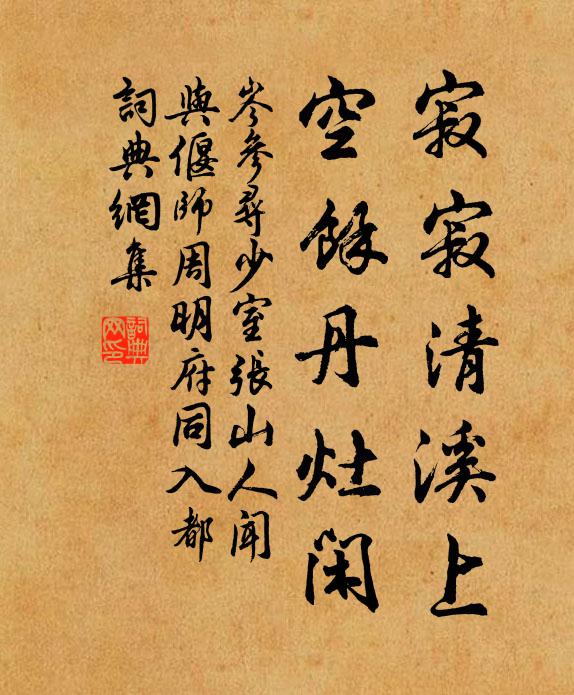 寂寂清溪上
空餘丹灶闲
岑參尋少室張山人聞
與偃師周明府同入都
詞典網集
詞典
网印